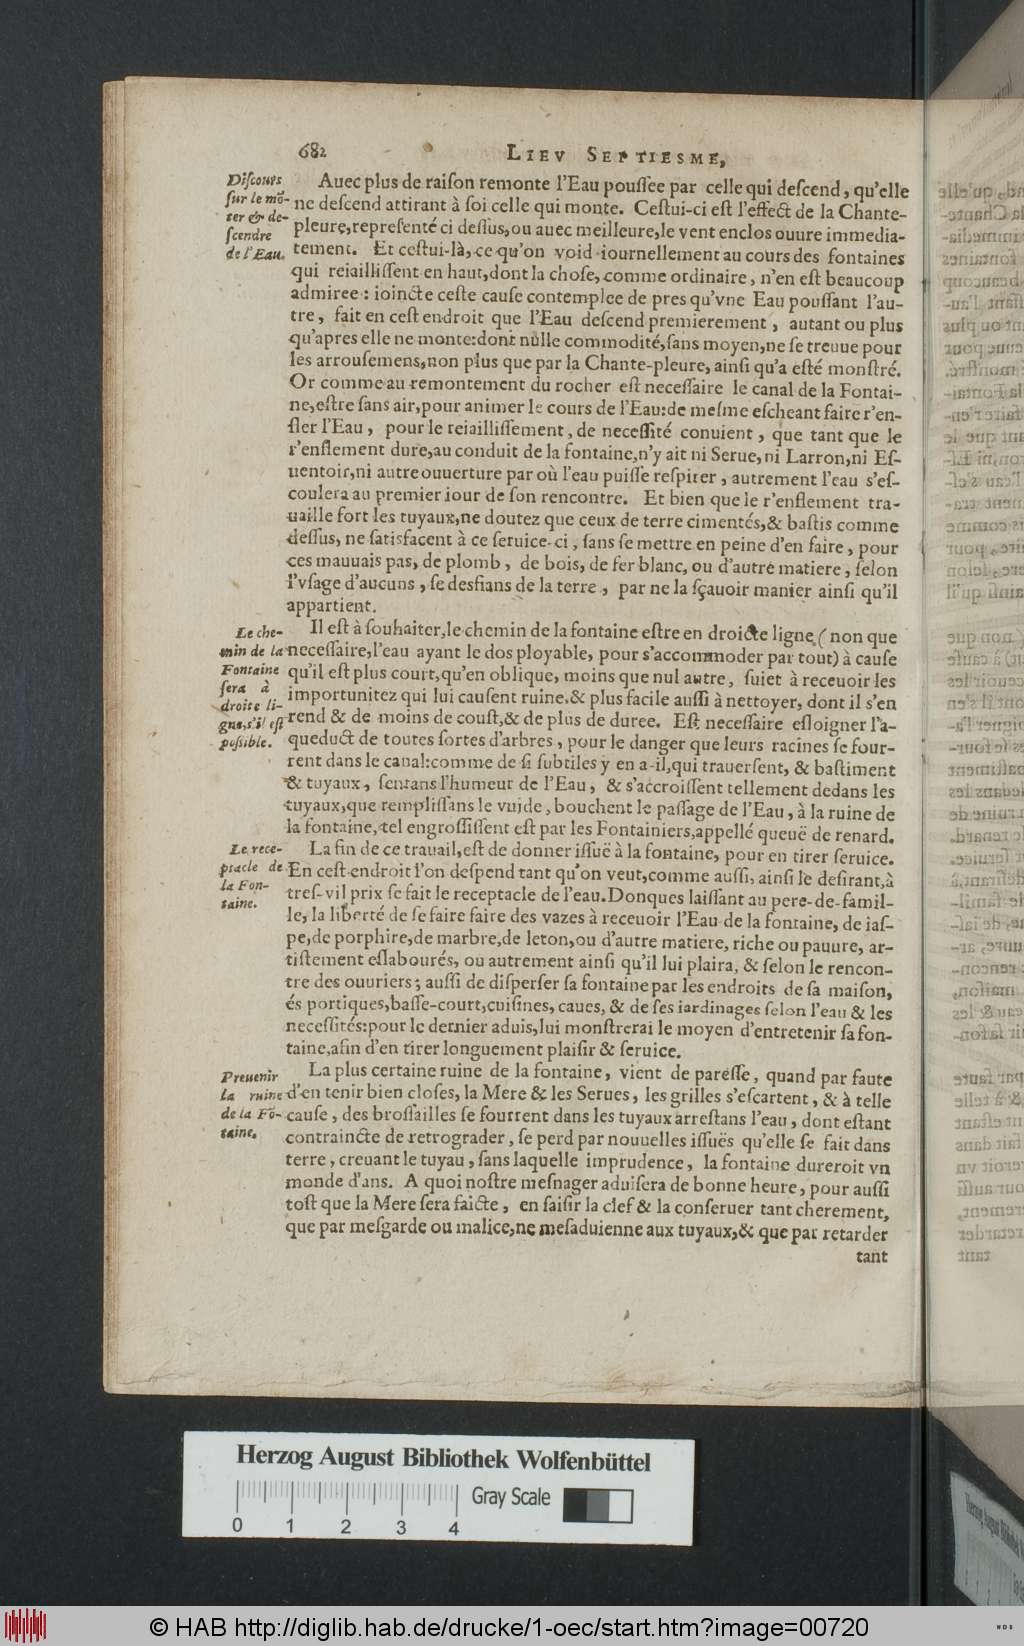 682
LIEV SEPTIESME,
Diſcours
ſur le mō-
ter & de-
ſcendre
de l'Eau.
Auec plus de raiſon remonte l'Eau pouſſee par celle qui deſcend, qu'elle
ne deſcend attirant à ſoi celle qui monte. Ceſtui-ci eſt l'effect de la Chante-
pleure, repreſenté ci deſſus, ou auec meilleure, le vent enclos ouure immedia-
tement. Et ceſtui-là, ce qu'on void iournellement au cours des fontaines
qui reiailliſſent en haut, dont la choſe, comme ordinaire, n'en eſt beaucoup
admiree: ioincte ceſte cauſe contemplee de pres qu'vne Eau pouſſant l'au-
tre, fait en ceſt endroit que l'Eau deſcend premierement, autant ou plus
qu'apres elle ne monte: dont nulle commodité, ſans moyen, ne ſe treuue pour
les arrouſemens, non plus que par la Chante-pleure, ainſi qu'a eſté monſtré.
Or comme au remontement du rocher eſt neceſſaire le canal de la Fontai-
ne, eſtre ſans air, pour animer le cours de l'Eau: de meſme eſcheant faire r'en-
fler l'Eau, pour le reiailliſſement, de neceſſité conuient, que tant que le
r'enflement dure, au conduit de la fontaine, n'y ait ni Serue, ni Larron, ni Eſ-
uentoir, ni autre ouuerture par où l'eau puiſſe reſpirer, autrement l'eau s'eſ-
coulera au premier iour de ſon rencontre. Et bien que le r'enflement tra-
uaille fort les tuyaux, ne doutez que ceux de terre cimentés, & baſtis comme
deſſus, ne ſatisfacent à ce ſeruice-ci, ſans ſe mettre en peine d'en faire, pour
ces mauuais pas, de plomb, de bois, de fer blanc, ou d'autre matiere, ſelon
l'vſage d'aucuns, ſe desfians de la terre, par ne la ſçauoir manier ainſi qu'il
appartient.
Le che-
min de la
Fontaine
ſera à
droite li-
gne, s'il eſt
poſſible.
Il eſt à ſouhaiter, le chemin de la fontaine eſtre en droicte ligne (non que
neceſſaire, l'eau ayant le dos ployable, pour s'accommoder par tout) à cauſe
qu'il eſt plus court, qu'en oblique, moins que nul autre, ſuiet à receuoir les
importunitez qui lui cauſent ruine. & plus facile auſſi à nettoyer, dont il s'en
rend & de moins de couſt, & de plus de duree. Eſt neceſſaire eſloigner l'a-
queduct de toutes ſortes d'arbres, pour le danger que leurs racines ſe four-
rent dans le canal: comme de ſi ſubtiles y en a-il, qui trauerſent, & baſtiment
& tuyaux, ſentans l'humeur de l'Eau, & s'accroiſſent tellement dedans les
tuyaux, que rempliſſans le vuide, bouchent le paſſage de l'Eau, à la ruine de
la fontaine, tel engroſſiſſent eſt par les Fontainiers, appellé queuë de renard.
Le rece-
ptacle de
la Fon-
taine.
La fin de ce trauail, eſt de donner iſſuë à la fontaine, pour en tirer ſeruice.
En ceſt endroit l'on deſpend tant qu'on veut, comme auſſi, ainſi le deſirant, à
treſ-vil prix ſe fait le receptacle de l'eau. Donques laiſſant au pere-de-famil-
le, la liberté de ſe faire faire des vazes à receuoir l'Eau de la fontaine, de iaſ-
pe, de porphire, de marbre, de leton, ou d'autre matiere, riche ou pauure, ar-
tiſtement eſlabourés, ou autrement ainſi qu'il lui plaira, & ſelon le rencon-
tre des ouuriers; auſſi de diſperſer ſa fontaine par les endroits de ſa maiſon,
és portiques, baſſe-court, cuiſines, caues, & de ſes iardinages ſelon l'eau & les
neceſſités: pour le dernier aduis, lui monſtrerai le moyen d'entretenir ſa fon-
taine, afin d'en tirer longuement plaiſir & ſeruice.
Preuenir
la ruine
de la Fō-
taine.
La plus certaine ruine de la fontaine, vient de pareſſe, quand par faute
d'en tenir bien cloſes, la Mere & les Serues, les grilles s'eſcartent, & à telle
cauſe, des broſſailles ſe fourrent dans les tuyaux arreſtans l'eau, dont eſtant
contraincte de retrograder, ſe perd par nouuelles iſſuës qu'elle ſe fait dans
terre, creuant le tuyau, ſans laquelle imprudence, la fontaine dureroit vn
monde d'ans. A quoi noſtre meſnager aduiſera de bonne heure, pour auſſi
toſt que la Mere ſera faicte, en ſaiſir la clef & la conſeruer tant cherement,
que par meſgarde ou malice, ne meſaduienne aux tuyaux, & que par retarder
tant
Herzog August Bibliothek Wolfenbüttel
Gray Scale
0 1 2 3 4
© HAB http://diglib.hab.de/drucke/1-oec/start.htm?image=00720